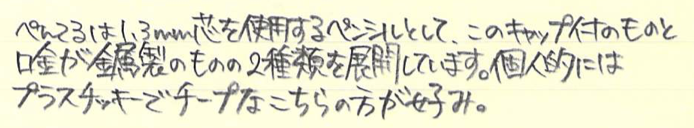 ぺんてるは1.3mm芯を使用するペンシルとして、このキャップ付のものと
口金が金属製のものの2種類を展開しています。個人的には
プラスチッキーでチープなこちらの方が好み。